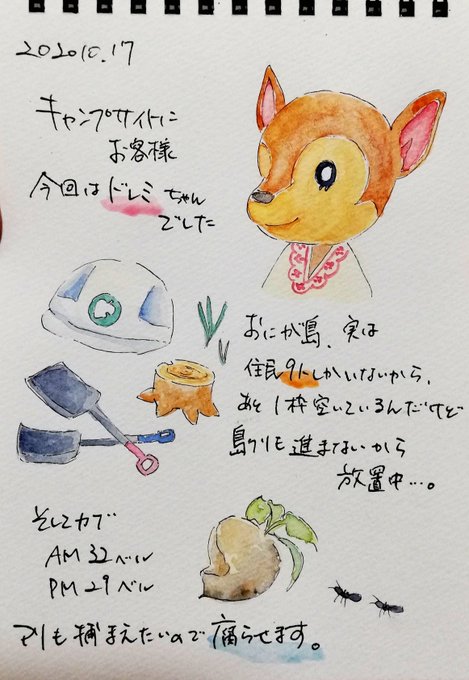 2020 10.17
キャンプサイトに
お客様
今回はドレミちゃん
でした
おにが島、実は
住民9人しかいないから、
あと1枠空いているんだけど
島クリも進まないから
放置中…。
そしてカブ
AM 32ベル
PM 29ベル
アリも捕まえたいので腐らせます。